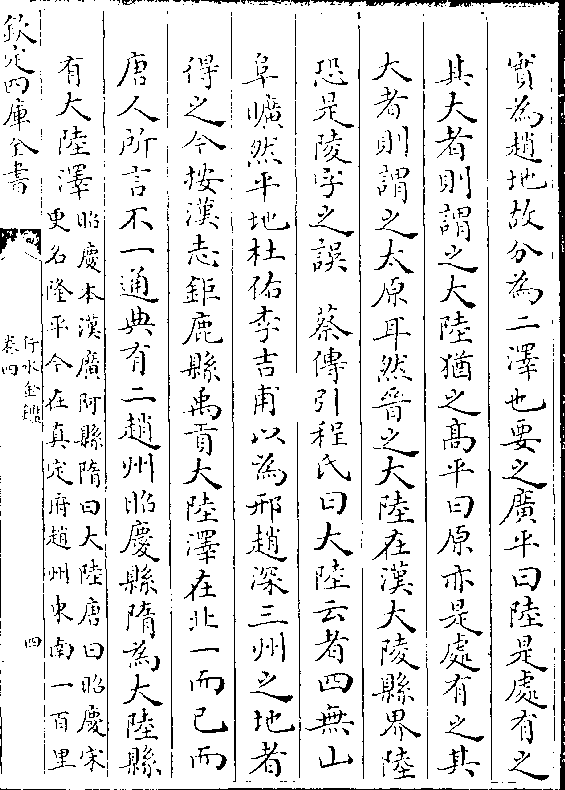 實為趙地故分為二澤也要之廣平曰陸是處有之
其大者則謂之大陸猶之髙平曰原亦是處有之其
大者則謂之太原耳然晉之大陸在漢大陵縣界陸
恐是陵字之誤　蔡傳引程氏曰大陸云者四無山
阜曠然平地杜佑李吉甫以為邢趙深三州之地者
得之今按漢志鉅鹿縣禹貢大陸澤在北一而已而
唐人所言不一通典有二趙州昭慶縣隋為大陸縣
有大陸澤昭慶本漢廣阿縣隋曰大陸唐曰昭慶宋
更名隆平今在真定府趙州東南一百里
欽定四庫全書
行水金鑑
卷四
四